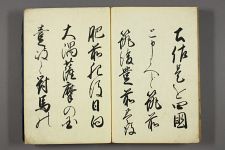 土佐是を四國
といふ 筑前
筑後豊前豊後
肥前肥後日向
大隅薩摩の国
壹岐 對馬の